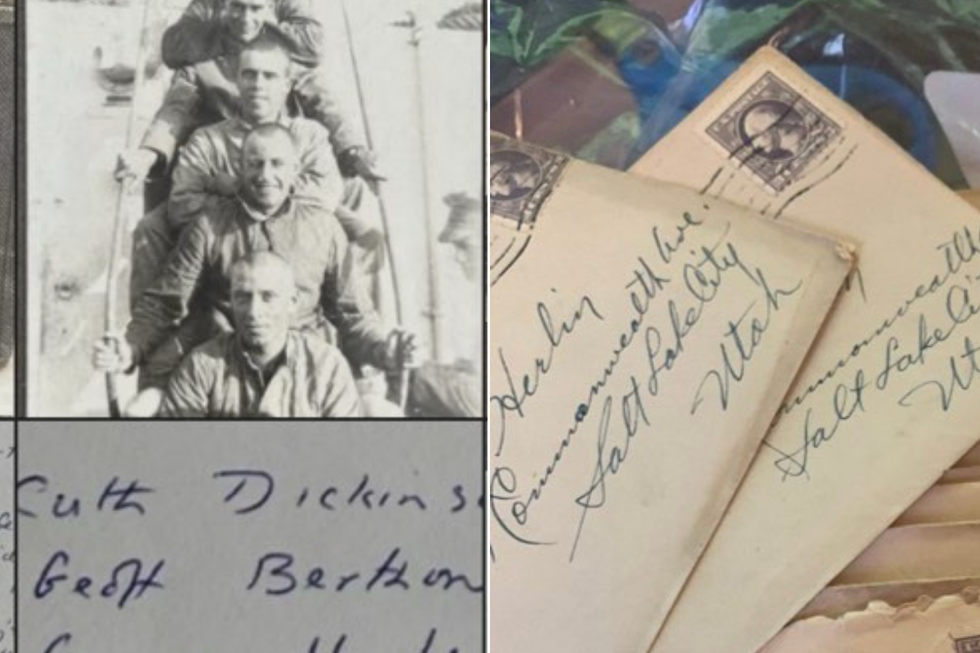 Dickins
Geoff Berthon
Herlin
Commonwealth Ave.
Salt Lake City
Utah
mmonwealth
Salt Lake C
Ut